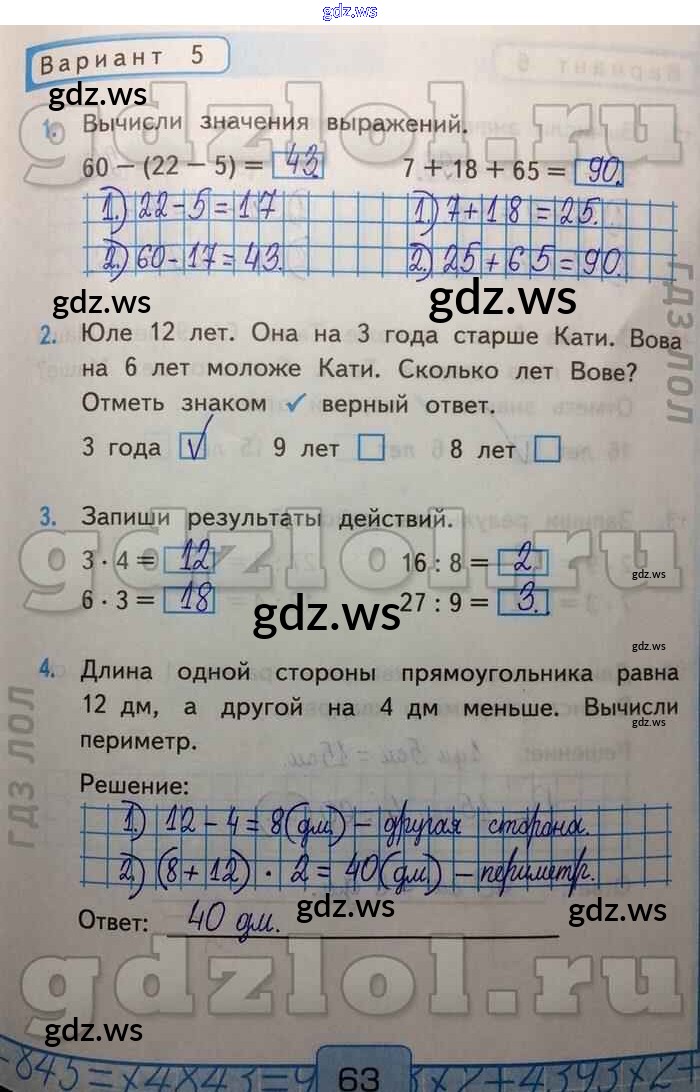 gdz.ws
Вариант 5
gdz.ws
gdzlol.ru
1. Вычисли значения выражений.
60 − (22 − 5) = 43. 7 + 18 + 65 = 90.
1.) 22-5=17 1.) 7+18=25.
2.) 60-17=43. 2.) 25+65=90.
gdz.ws gdz.ws
ГДЗ ЛОЛ
2. Юле 12 лет. Она на 3 года старше Кати. Вова
на 6 лет моложе Кати. Сколько лет Вове?
Отметь знаком ✓ верный ответ.
3 года ✓ 9 лет 8 лет
3. Запиши результаты действий.
gdzlol.ru
3 · 4 = 12 16 : 8 = 2.
gdz.ws
6 · 3 = 18 27 : 9 = 3.
gdz.ws
gdz.ws
4. Длина одной стороны прямоугольника равна
12 дм, а другой на 4 дм меньше. Вычисли
gdz.ws
периметр.
ГДЗ ЛОЛ
Решение:
1.) 12-4=8(дм.) – другая сторона.
2.) (8+12) · 2=40(дм) – периметр.
Ответ: 40 дм.
gdz.ws gdz.ws
gdzlol.ru
gdz.ws
63